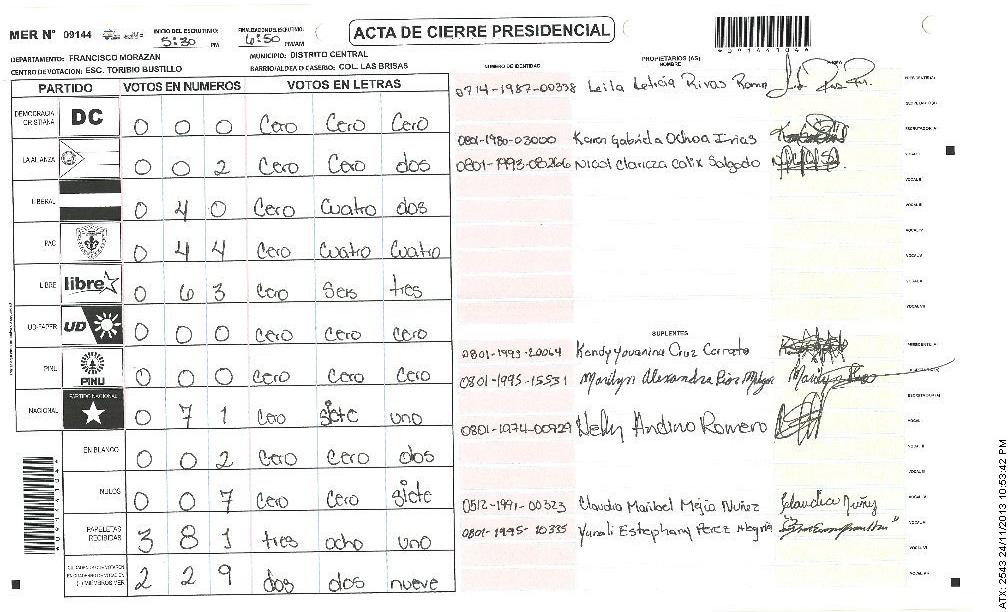 MER N° 09144
INICIO DEL ESCRUTINIO: 5:30 PM
FINALIZACION DEL ESCRUTINIO: 6:50 PM/AM
ACTA DE CIERRE PRESIDENCIAL
DEPARTAMENTO: FRANCISCO MORAZAN
MUNICIPIO: DISTRITO CENTRAL
CENTRO DE VOTACION: ESC. TORIBIO BUSTILLO
BARRIO/ALDEA O CASERIO: COL. LAS BRISAS
PARTIDO VOTOS EN NUMEROS VOTOS EN LETRAS
DEMOCRACIA CRISTIANA DC 0 0 0 Cero Cero Cero
LA ALIANZA 0 0 2 Cero Cero dos
LIBERAL 0 4 0 Cero Cuatro dos
PAC 0 4 4 Cero Cuatro Cuatro
LIBRE libre 0 6 3 Cero Seis tres
UD-FAPER UD 0 0 0 Cero Cero Cero
PINU PINU 0 0 0 Cero Cero Cero
NACIONAL PARTIDO NACIONAL 0 7 1 Cero siete uno
EN BLANCO 0 0 2 Cero Cero dos
NULOS 0 0 7 Cero Cero siete
PAPELETAS RECIBIDAS 3 8 1 tres ocho uno
2 2 9 dos dos nueve
NUMERO DE IDENTIDAD
PROPIETARIOS (AS)
NOMBRE
FIRMA
0714-1987-00378 Leila Leticia Rivas Romn
0801-1980-03000 Karen Gabriela Ochoa Irias
0801-1993-08266 Nicol Clarizza Calix Salgado
SUPLENTES
0801-1993-20064 Kendy Yovanina Cruz Cerrato
0801-1995-15531 Marilyn Alexandra
0801-1974-00929 Nelly Andino Romero
0512-1991-00323 Claudia Maribel Mejia Nuñez Claudia Nuñez
0801-1995-10335 Yunali Estephany Perez Alegria
ATX: 2543 24/11/2013 10:53:42 PM